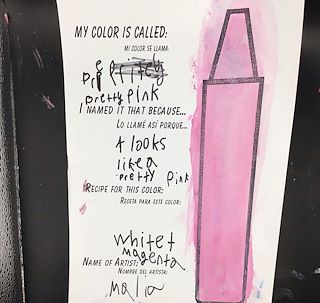 MY COLOR IS CALLED:
MI COLOR SE LLAMA:
pretty pink
I NAMED IT THAT BECAUSE...
LO LLAMÉ ASÍ PORQUE...
it looks
like a
pretty pink
RECIPE FOR THIS COLOR:
RECETA PARA ESTE COLOR:
white +
magenta
NAME OF ARTIST:
NOMBRE DEL ARTISTA: